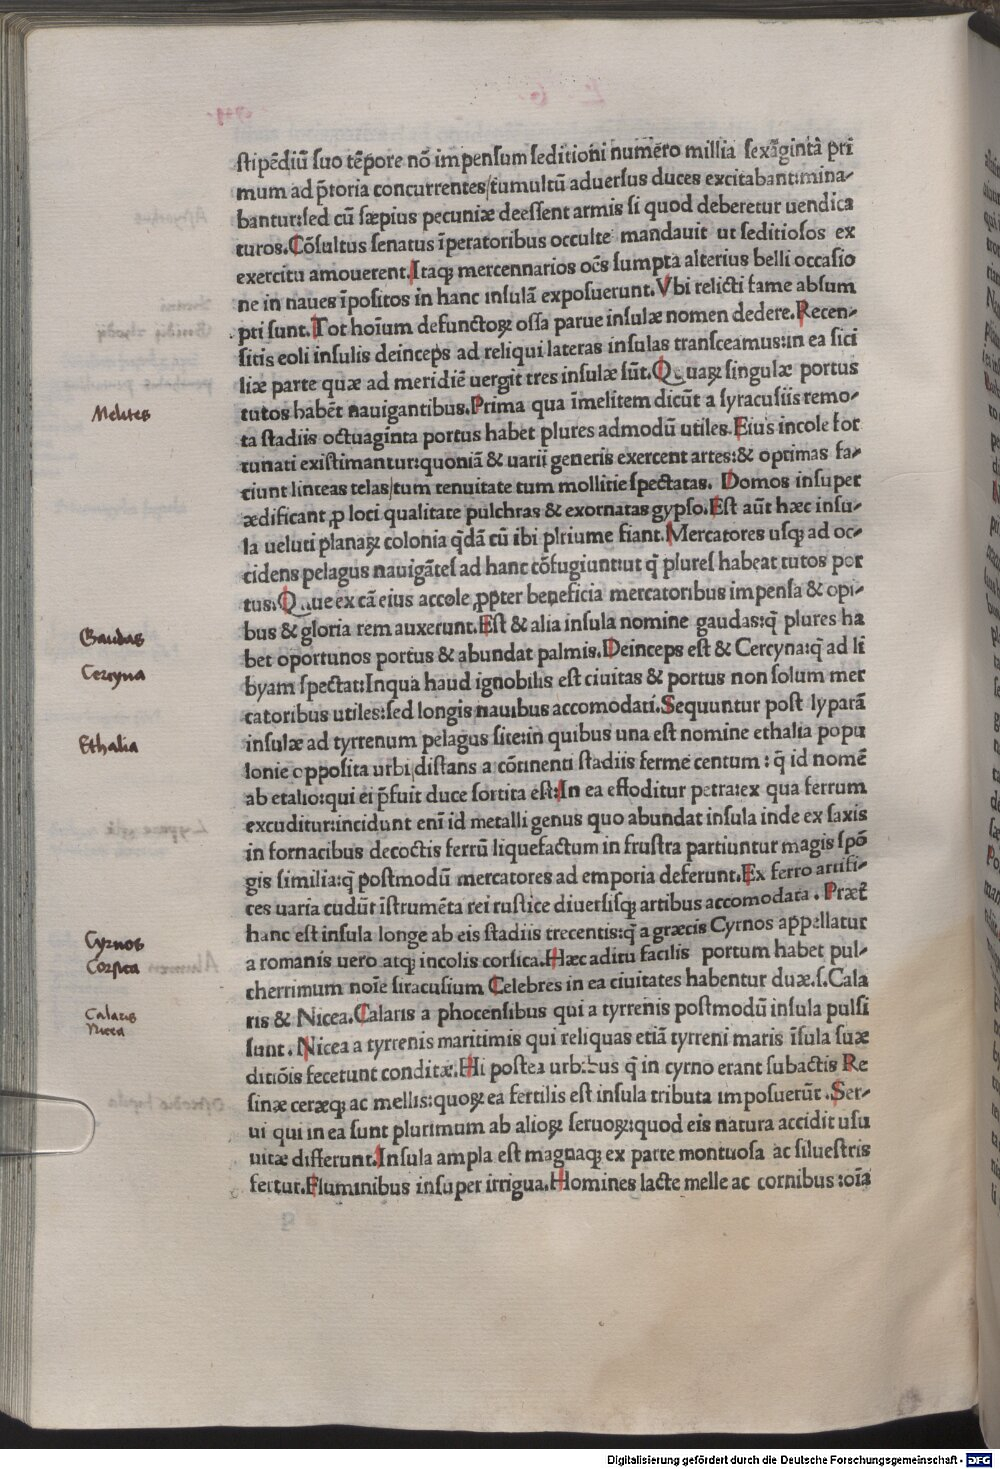 stipēdiū suo tēpore nō impensum seditioni numero millia sexagintà pri
mum ad p̄toria concurrentes/tumultū aduersus duces excitabant:mina⸗
bantur:sed cū sæpius pecuniæ deessent armis si quod deberetur uendica
turos.Cōsultus senatus īperatoribus occulte mandauit ut seditiosos ex
exercitu amouerent.Itaqȝ mercennarios oēs sumpta alterius belli occasio
ne in naues īpositos in hanc insulā exposuerunt.Vbi relicti fame absum
pti sunt.Tot hoīum defunctoꝝ ossa parue insulæ nomen dedere.Recen⸗
sitis eoli insulis deinceps ad reliqui lateras insulas transceamus:in ea sici
liæ parte quæ ad meridiē uergit tres insulæ sūt.Quaꝝ singulæ portus
Melites
tutos habēt nauigantibus.Prima qua īmelitem dicūt a syracusiis remo⸗
ta stadiis octuaginta portus habet plures admodū utiles.Eius incole for
tunati existimantur:quoniā & uarii generis exercent artes:& optimas fa⸗
ciunt linteas telas/tum tenuitate tum mollitie spectatas. Domos insuper
ædificant ꝓ loci qualitate pulchras & exornatas gypso.Est aūt hæc insu⸗
la ueluti planaꝝ colonia q̄dā cū ibi plriume fiant.Mercatores usqȝ ad oc⸗
cidens pelagus nauigātes ad hanc cōfugiunt:ut q̄ plures habeat tutos por
tus.Que ex cā eius accole ꝓpter beneficia mercatoribus impensa & opi⸗
Gaudas
bus & gloria rem auxerunt.Est & alia insula nomine gaudas:q̄ plures ha
bet oportunos portus & abundat palmis.Deinceps est & Cercyna:q̄ ad li
Cercyna
byam spectat:Inqua haud ignobilis est ciuitas & portus non solum mer
catoribus utiles:sed longis nauibus accomodati.Sequuntur post lyparā
Ethalia
insulæ ad tyrrenum pelagus site:in quibus una est nomine ethalia popu
lonie opposita urbi distans a cōtinenti stadiis ferme centum : q̄ id nomē
ab etalio:qui ei p̄fuit duce sortita est:In ea effoditur petra:ex qua ferrum
excuditur:incidunt enī id metalli genus quo abundat insula inde ex saxis
in fornacibus decoctis ferrū liquefactum in frustra partiuntur magis spō
gis similia:q̄ postmodū mercatores ad emporia deferunt.Ex ferro artifi⸗
ces uaria cudūt īstrumēta rei rustice diuersisqȝ artibus accomodata . Præt̄
hanc est insula longe ab eis stadiis trecentis:q̄ a græcis Cyrnos appellatur
Cyrnos
Corsica
a romanis uero atqȝ incolis corsica.Hæc aditu facilis portum habet pul⸗
cherrimum noīe siracusium Celebres in ea ciuitates habentur duæ.s.Cala
Calaris
Nicea
ris & Nicea.Calaris a phocensibus qui a tyrrenis postmodū insula pulsi
sunt . Nicea a tyrrenis maritimis qui reliquas etiā tyrreni maris īsula suæ
ditiōis fecetunt conditæ.Hi postea urbibus q̄ in cyrno erant subactis Re
sinæ ceræqȝ ac mellis:quoꝝ ea fertilis est insula tributa imposuerūt .Ser⸗
ui qui in ea sunt plurimum ab alioꝝ seruoꝝ:quod eis natura accidit usu
uitæ differunt.Insula ampla est magnaqȝ ex parte montuosa ac siluestris
fertur.Fluminibus insuper irrigua.Homines lacte melle ac cornibus:oīa
Digitalisierung gefördert durch die Deutsche Forschungsgemeinschaft - DFG